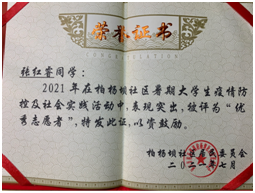 荣誉证书
张红睿同学：
2021年在柏杨坝社区暑期大学生疫情防
控及社会实践活动中，表现突出，被评为“优
秀志愿者”，特发此证，以资鼓励。
柏杨坝社区居民委员会
二〇二一年七月